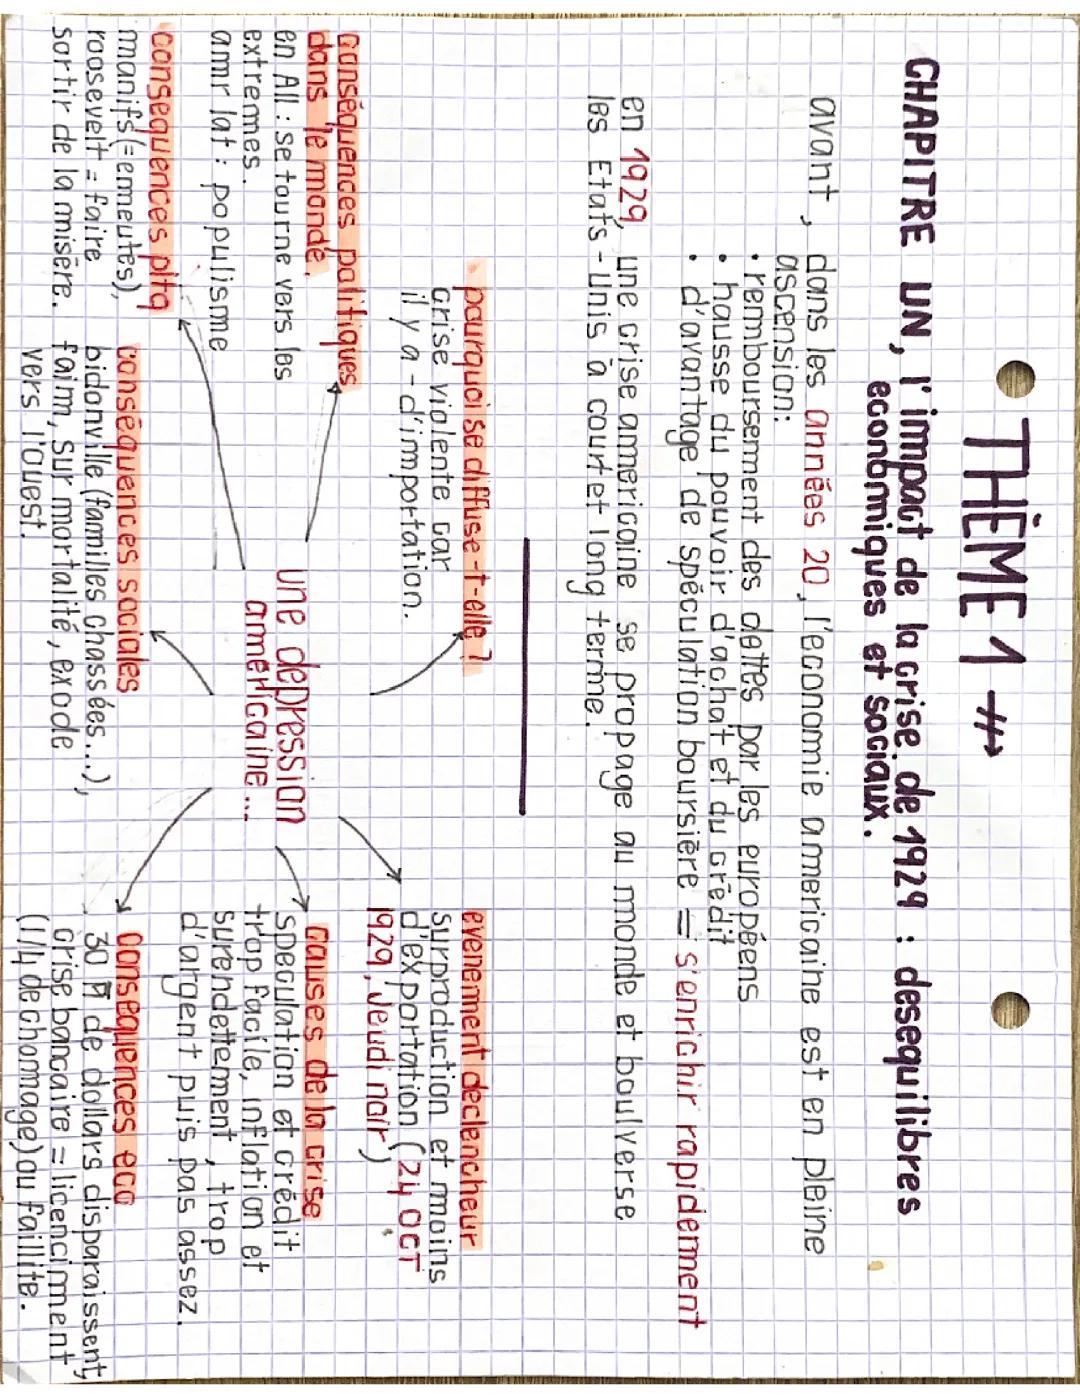 THÈME 1
CHAPITRE UN, l'impact de la crise de 1929 : desequilibres
economiques et sociaux.
avant, dans les années 20, l'economie americaine est en pleine
ascension:
• remboursement des dettes par les européens
• hausse du pouvoir d'achat et du crédit
• d'avantage de spéculation boursière = s'enrichir rapidement
en 1929, une crise americaine se propage au monde et boulverse
les Etats-Unis à court et long terme.
pourquoi se diffuse-t-elle ?
crise violente car
il y a - d'importation.
evenement declencheur
surproduction et moins
d'exportation (24 OCT
1929, Jeudi noir)
conséquences politiques
dans le monde.
en All : se tourne vers les
extremes.
amr lat : populisme
une depression
américaine ...
causes de la crise
speculation et crédit
trop facile, inflation et
surendettement, trop
d'argent puis pas assez.
consequences pltq
manifs (=emeutes),
roosevelt = faire
sortir de la misère.
conséquences sociales
bidonville (familles chassées...),
faim, sur mortalité, exode
vers l'ouest.
consequences eco
30 M de dollars disparaissent,
crise bancaire = licenciment
(1/4 de chomage) ou faillite.